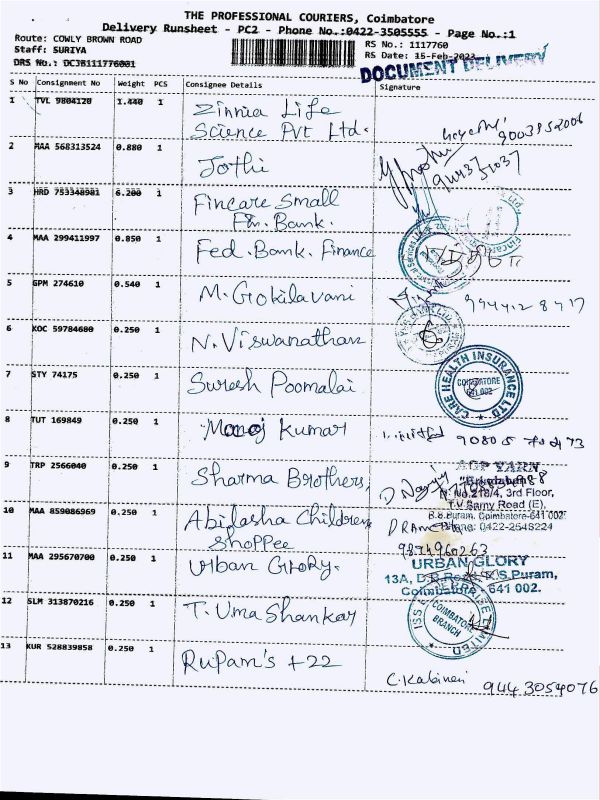 THE PROFESSIONAL COURIERS, Coimbatore
Delivery Runsheet - PC2 - Phone No.:0422-3505555 - Page No.:1
Route: COWLY BROWN ROAD
Staff: SURIYA
DRS No.: DCJB111776001
RS No.: 1117760
RS Date: 15-Feb-2023
DOCUMENT DELIVERY
S No Consignment No Weight PCS Consignee Details Signature
1 TVL 9804120 1.440 1 Zinnia Life
Science Pvt Ltd.
9003952006
2 MAA 568313524 0.880 1 Jothi
3 HRD 753348981 6.200 1 Fincare Small
Fin. Bank.
4 MAA 299411997 0.850 1 Fed. Bank. Finance
5 GPM 274610 0.540 1 M. Gokilavani
6 KOC 59784600 0.250 1 N. Viswanathan
7 STY 74175 0.250 1 Suresh Poomalai
CARE HEALTH INSURANCE LTD
COIMBATORE
641 002
8 TUT 169849 0.250 1 Manoj Kumar
9 TRP 2566040 0.250 1 Sharma Brothers,
AGP YARN
No.218/4, 3rd Floor,
T.V Samy Road (E),
R.S.Puram, Coimbatore-641 002.
Phone: 0422-2548224
10 MAA 859086969 0.250 1 Abilasha Children
Shoppee
11 MAA 295670700 0.250 1 Urban Glory.
URBAN GLORY
13A, D.B.Road, R.S.Puram,
Coimbatore - 641 002.
12 SLM 313870216 0.250 1 T. Uma Shankar
COIMBATORE
BRANCH
13 KUR 528839858 0.250 1 Rupam's +22
9443054076